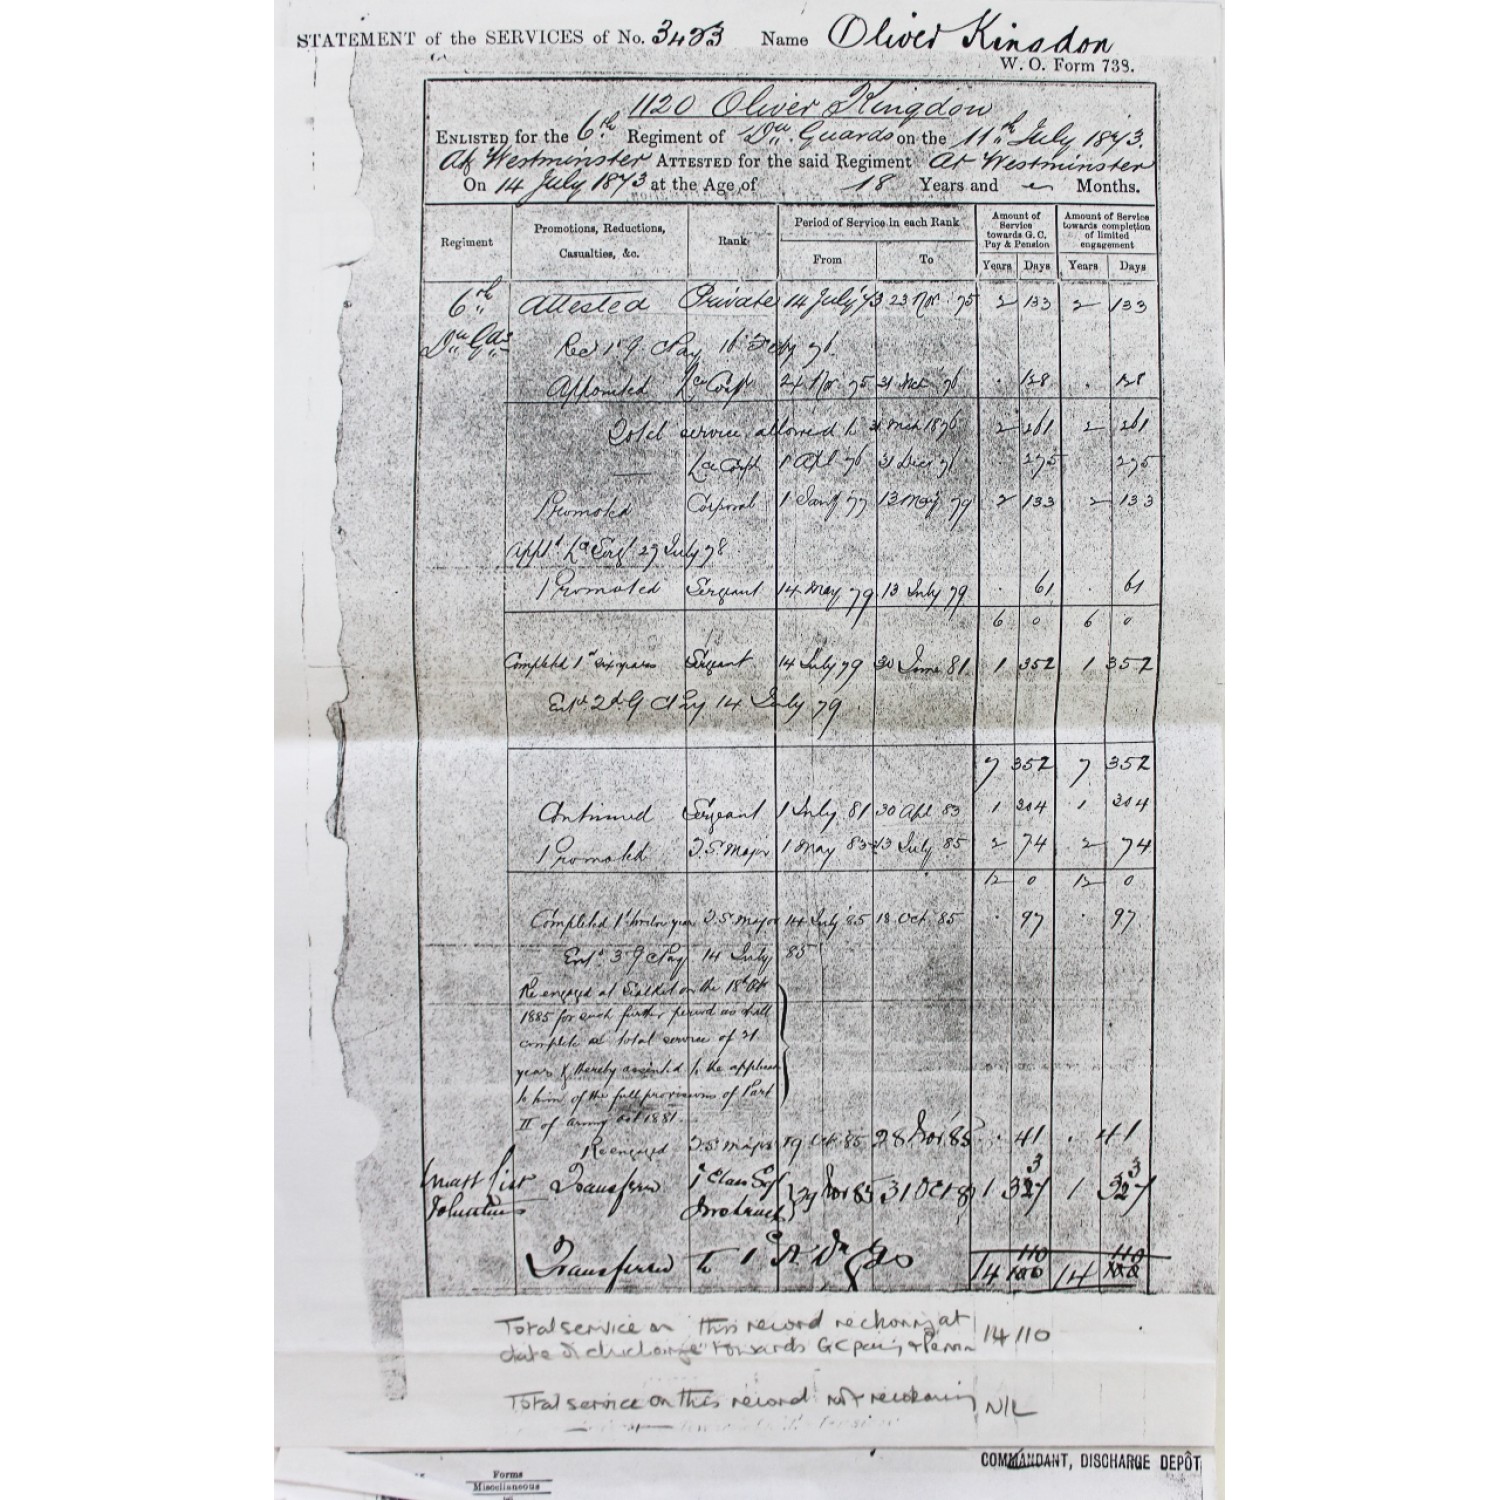 STATEMENT of the SERVICES of No. 3423 Name Oliver Kingdon
W. O. Form 738.
1120 Oliver Kingdon
ENLISTED for the 6th Regiment of Dn. Guards on the 11th July 1873.
At Westminster ATTESTED for the said Regiment At Westminster
On 14 July 1873 at the Age of 18 Years and Months.
Regiment Promotions, Reductions, Casualties, &c. Rank Period of Service in each Rank Amount of Service towards G. C. Pay & Pension Amount of Service towards completion of limited engagement
From To Years Days Years Days
6th Attested Private 14 July 73 23 Nov 75 2 133 2 133
Dn Gds 1st G. C Pay 16 Feby 76.
Appointed Lce Corpl 24 Nov 75 31 Mch 76 . 128 . 128
Total service allowed to 31 Mch 1876 2 261 2 261
— Lce Corpl 1 Apl 76 31 Decr 76 . 275 . 275
Promoted Corporal 1 Jany 77 13 May 79 2 133 2 133
Appt Lce Sergt 27 July 78.
Promoted Sergeant 14 May 79 13 July 79 . 61 . 61
6 0 6 0
Completed 1st six years Sergeant 14 July 79 30 June 81 1 352 1 352
Entd 2d G C Pay 14 July 79
7 352 7 352
Continued Sergeant 1 July 81 30 Apl 83 1 304 1 304
Promoted T. S. Major 1 May 83 13 July 85 2 74 2 74
12 0 12 0
Completed 1st twelve years T. S. Major 14 July 85 18 Oct 85 . 97 . 97
Entd 3 G C Pay 14 July 85
Re-engaged at Sialkot on the 18th Oct
1885 for such further period as shall
complete a total service of 21
years & thereby assented to the applicn
to him of the full provisions of Part
II of Army Act 1881.
Re-engaged T. S. Major 19 Oct 85 28 Nov 85 . 41 . 41
Unatt list Transferred 1 Class Sgt 29 Nov 85 31 Oct 87 1 337 1 337
Volunteers Instructor
Transferred to 1st 110 110
14 14
Total service on this record reckoning at 14 110
date of discharge towards GC pay & Pension
Total service on this record not reckoning NIL
COMMANDANT, DISCHARGE DEPÔT
Forms
Miscellaneous